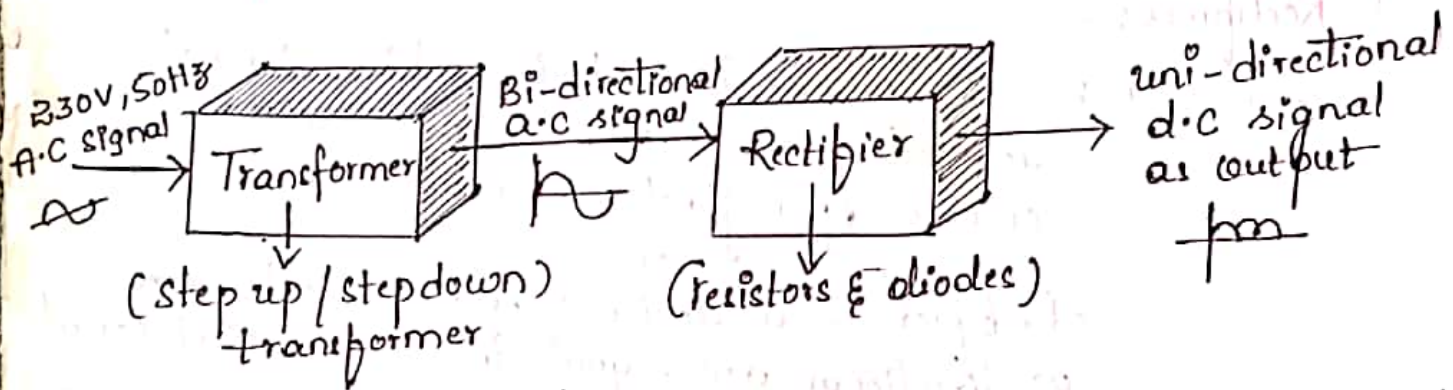 230V, 50Hz
A.C signal
Transformer
(step up / stepdown)
transformer
Bi-directional
a.c signal
Rectifier
(resistors & diodes)
uni-directional
d.c signal
as output